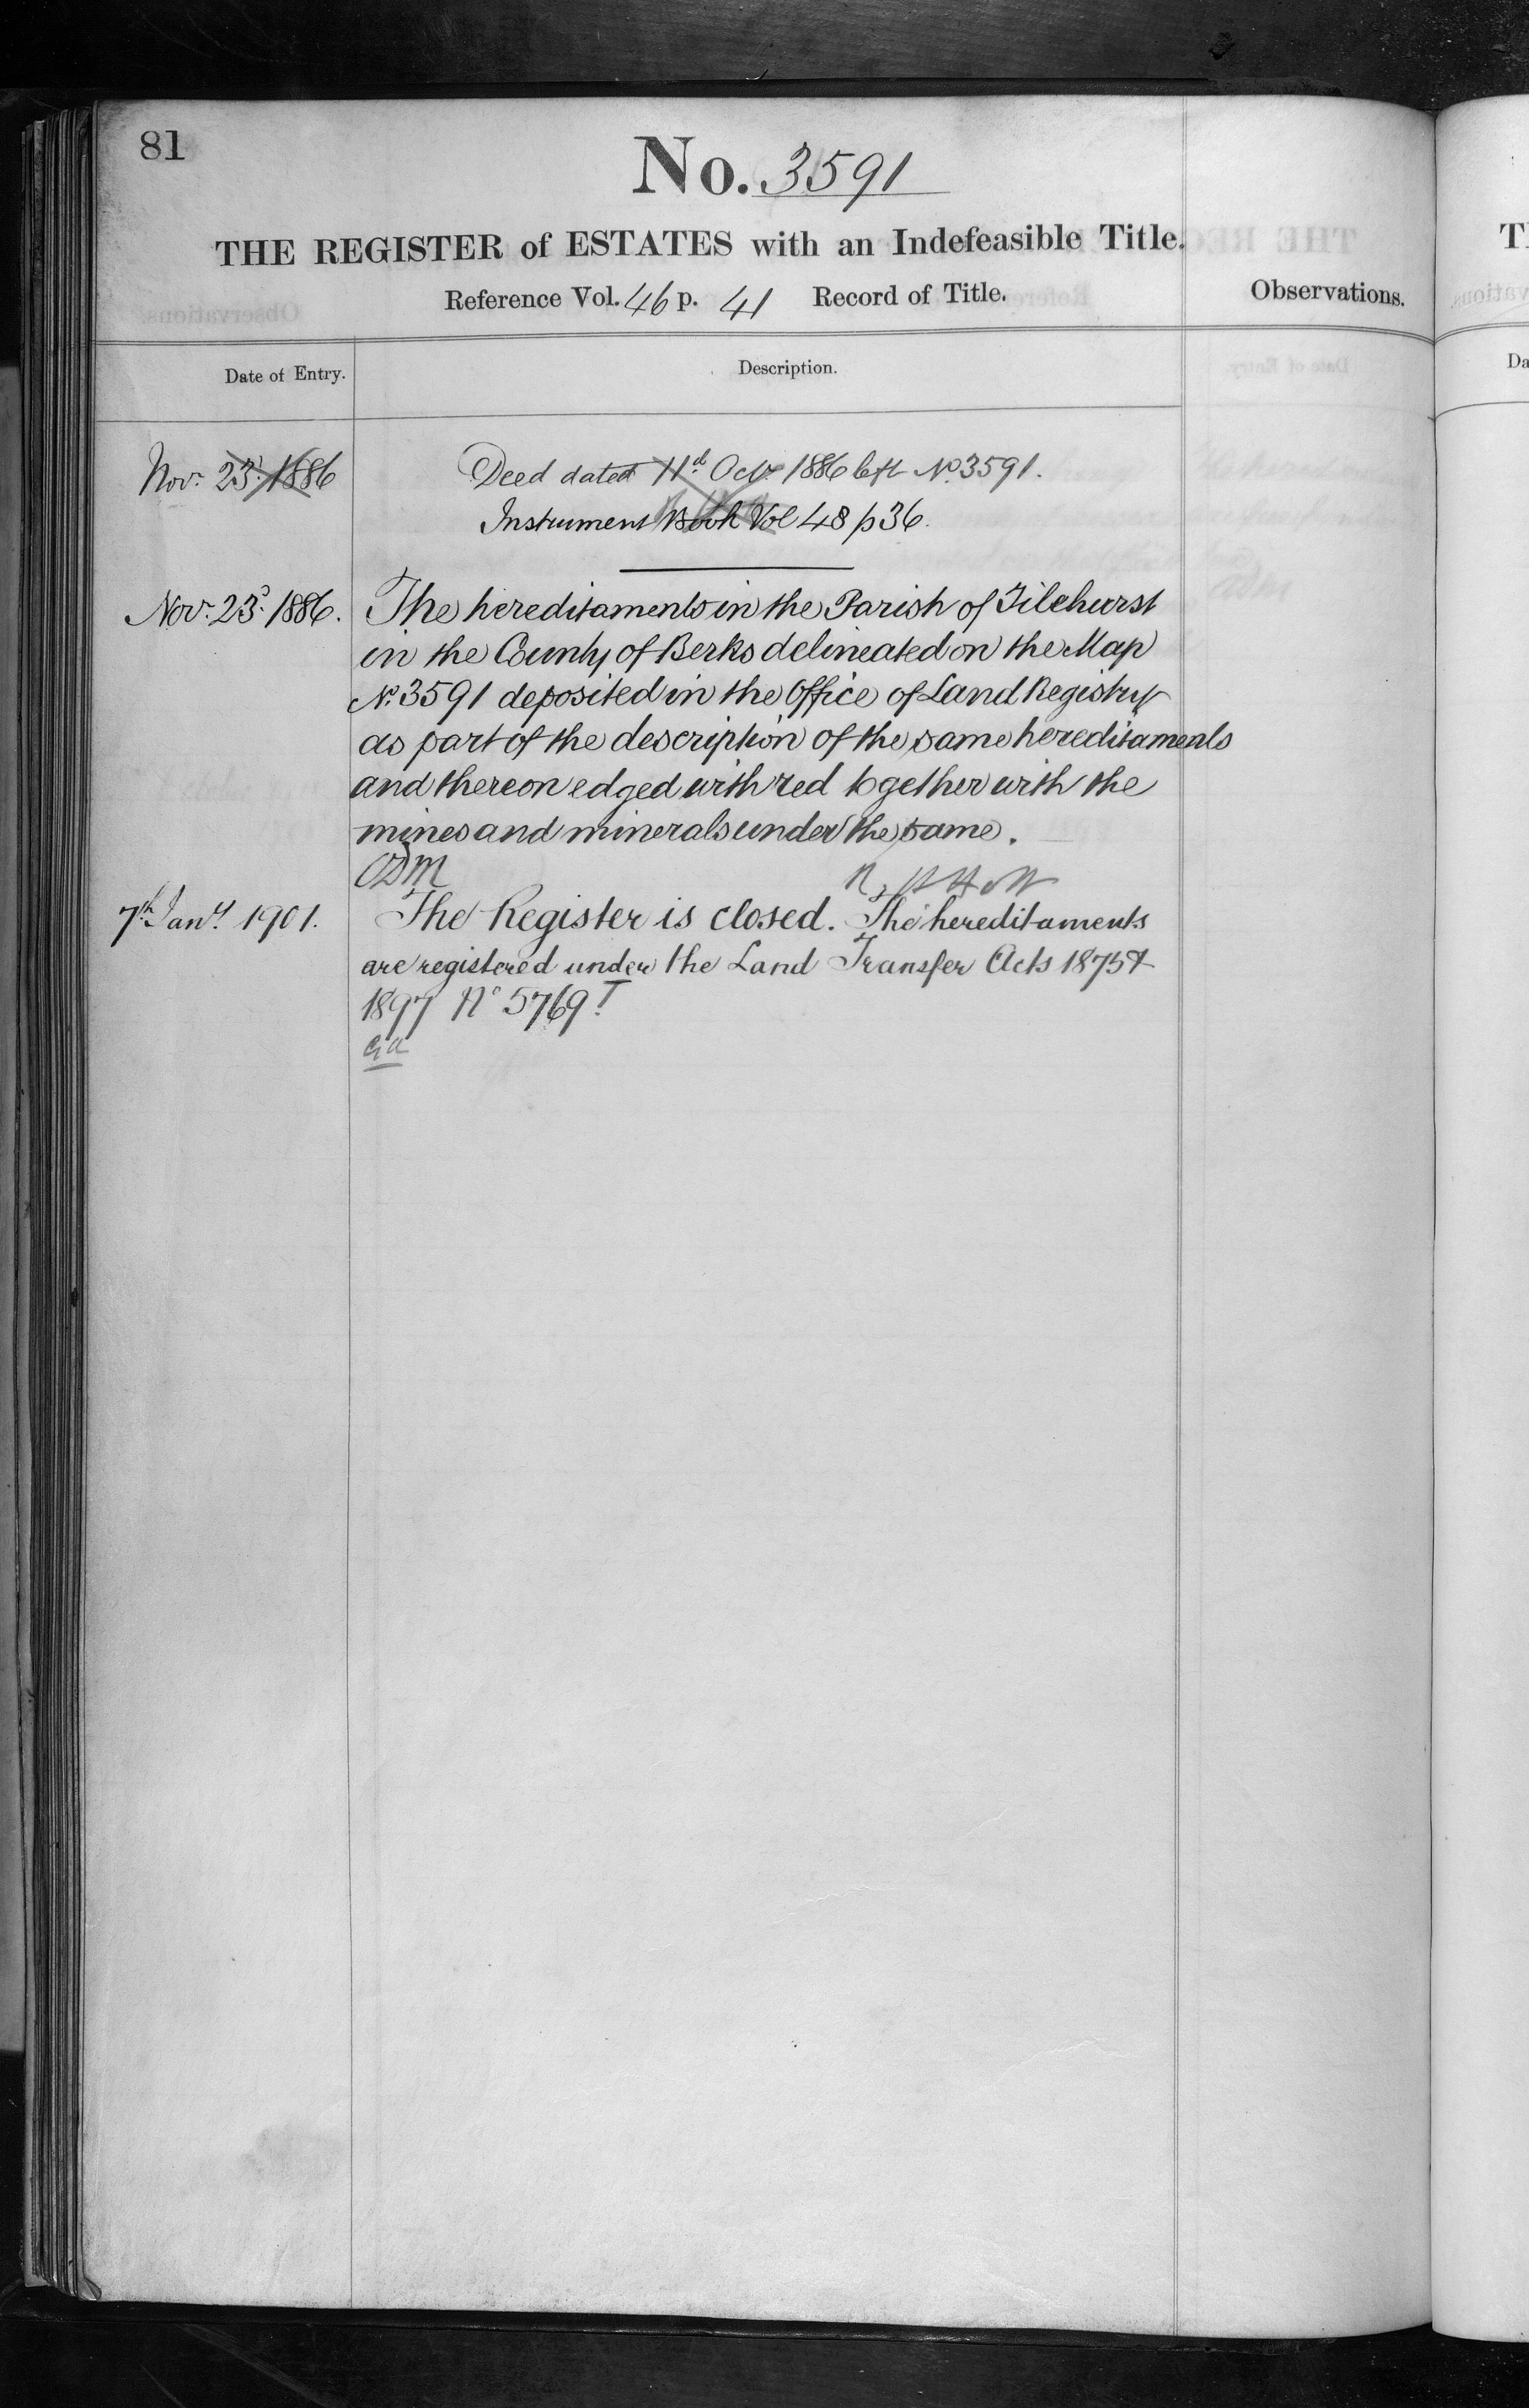 81
No. 3591
THE REGISTER of ESTATES with an Indefeasible Title.
Reference Vol. 46 p. 41 Record of Title.
Observations.
Date of Entry.
Description.
Nov. 23d. 1886
Deed dated 11d Octr 1886 left No. 3591.
Instrument Book Vol 48 p 36.
Novr. 23d. 1886.
The hereditaments in the Parish of Tilehurst
in the County of Berks delineated on the Map
No. 3591 deposited in the Office of Land Registry
as part of the description of the same hereditaments
and thereon edged with red together with the
mines and minerals under the same.
7th Jany 1901.
The Register is closed. The hereditaments
are registered under the Land Transfer Acts 1875 &
1897 No 5769 T